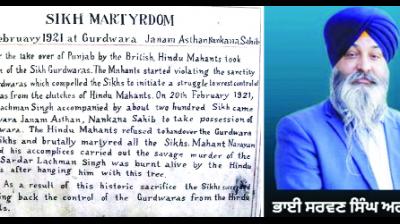 SIKH MARTYRDOM
ebruary 1921 at Gurdwara Janam Asthan Nankana Sahib
r the take over of Punjab by the British, Hindu Mahants took
n of the Sikh Gurdwaras. The Mahants started violating the sanctity
rdwaras which compelled the Sikhs to initiate a struggle to wrest control of
ras from the clutches of Hindu Mahants. On 20th February 1921,
achman Singh accompanied by about two hundred Sikh came
wara Janam Asthan, Nankana Sahib to take possession of
wara. The Hindu Mahants refused to handover the Gurdwara
ikhs and brutally martyred all the Sikhs. Mahant Narayan
nd his accomplices carried out the savage murder of the
Sardar Lachman Singh was burnt alive by the Hindu
s after hanging him with this tree.
As a result of this historic sacrifice the Sikhs
ing back the control of the Gurdwaras from the Hindu
s.
ਭਾਈ ਸਰਵਣ ਸਿੰਘ ਅਗ